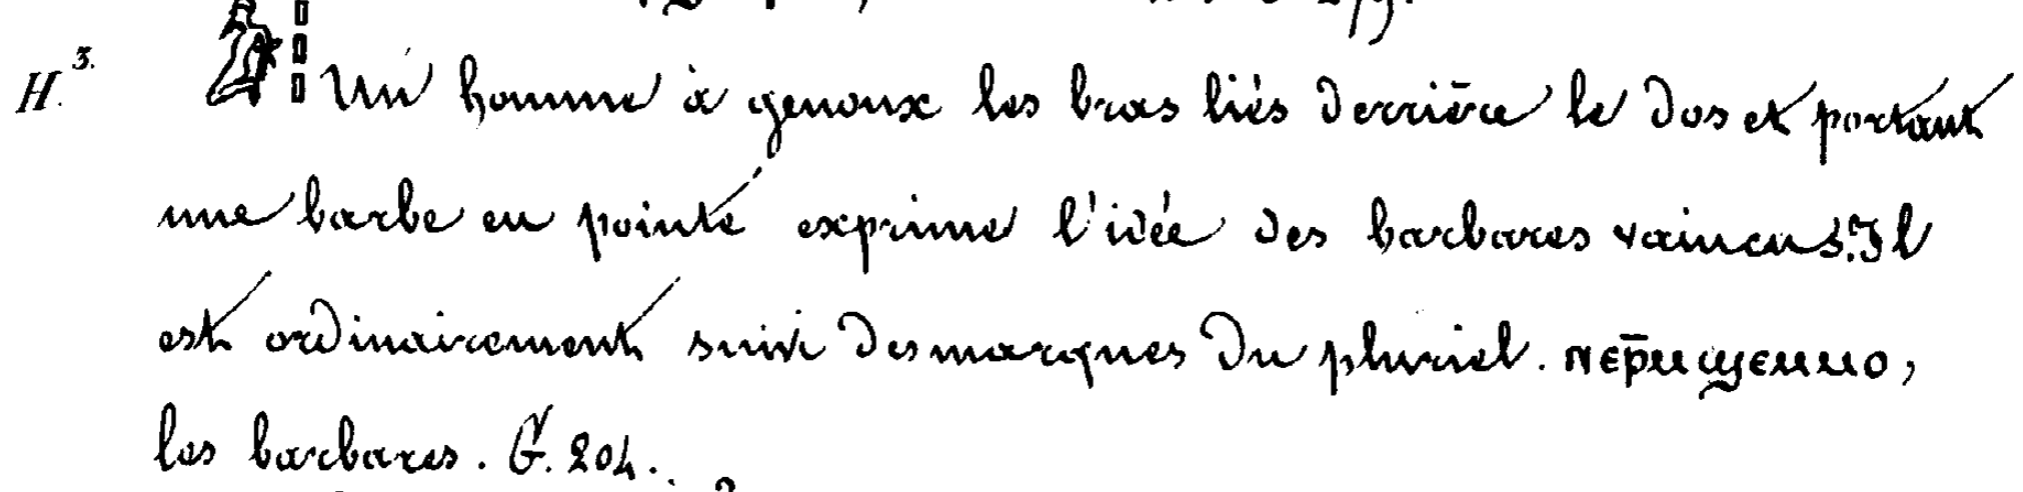 H.³. Un homme à genoux les bras liés derrière le dos et portant
une barbe en pointe exprime l'idée des barbares vaincus. Il
est ordinairement suivi des marques du pluriel.
les barbares. G. 204.